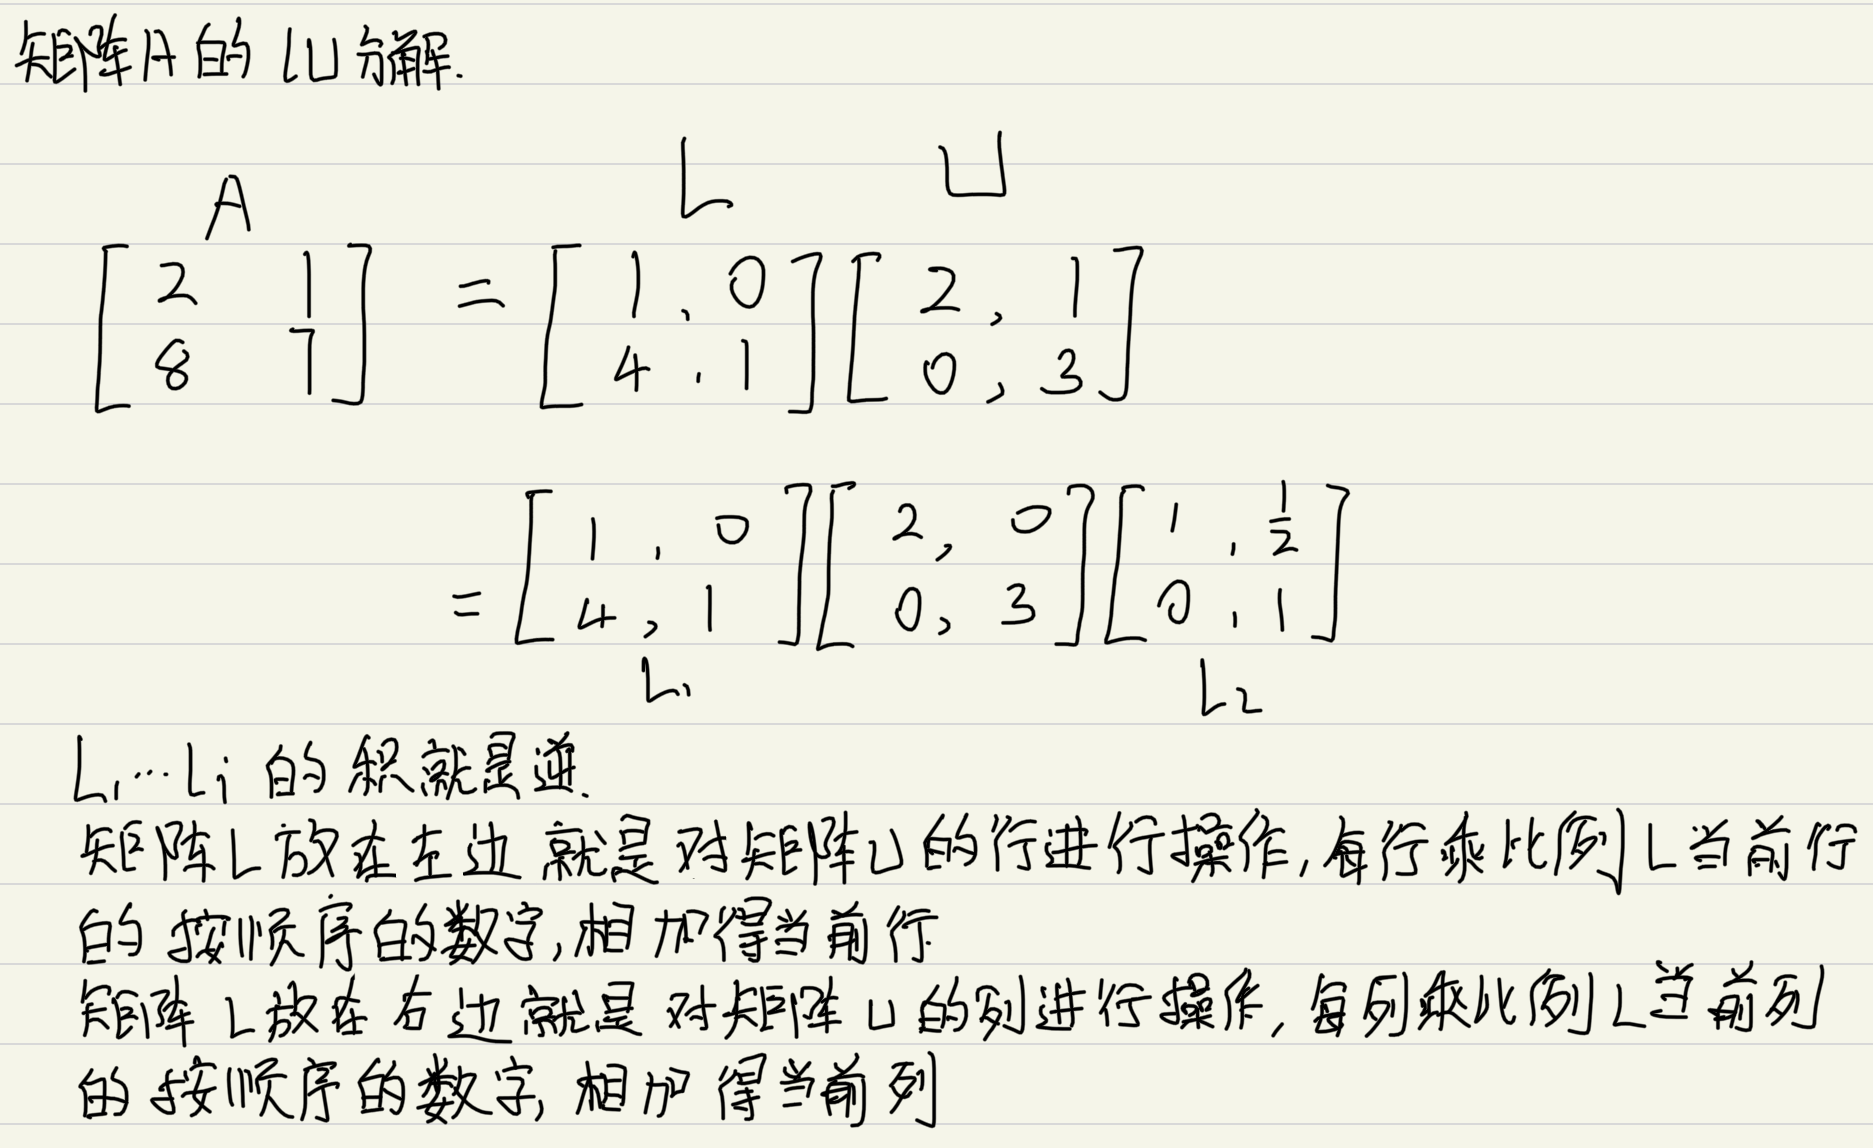 矩阵A的 LU分解.
A L U
[2 1 = [1, 0] [2, 1
8 7] 4, 1] 0, 3]
= [1, 0] [2, 0] [1, 1/2
4, 1] 0, 3] 0, 1]
L₁ L₂
L₁...Li 的积就是逆.
矩阵L放在左边就是对矩阵U的行进行操作,每行乘比例L当前行
的按顺序的数字,相加得当前行
矩阵L放在右边就是对矩阵U的列进行操作,每列乘比例L当前列
的按顺序的数字,相加得当前列